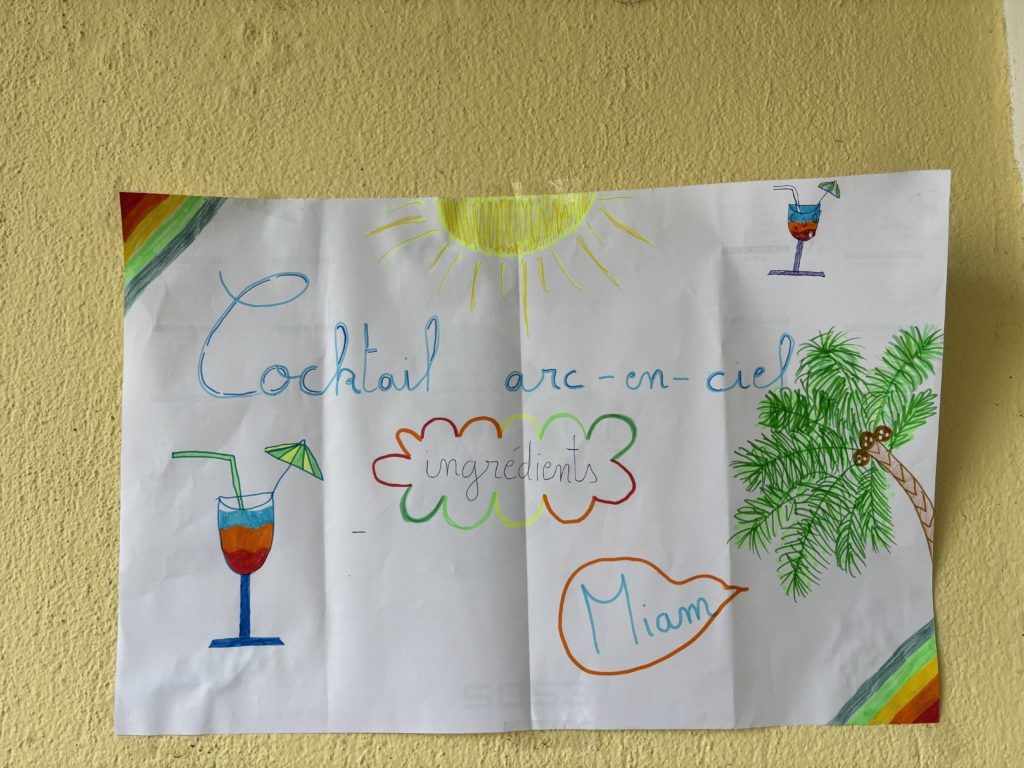 Cocktail arc-en-ciel
ingrédients
-
Miam